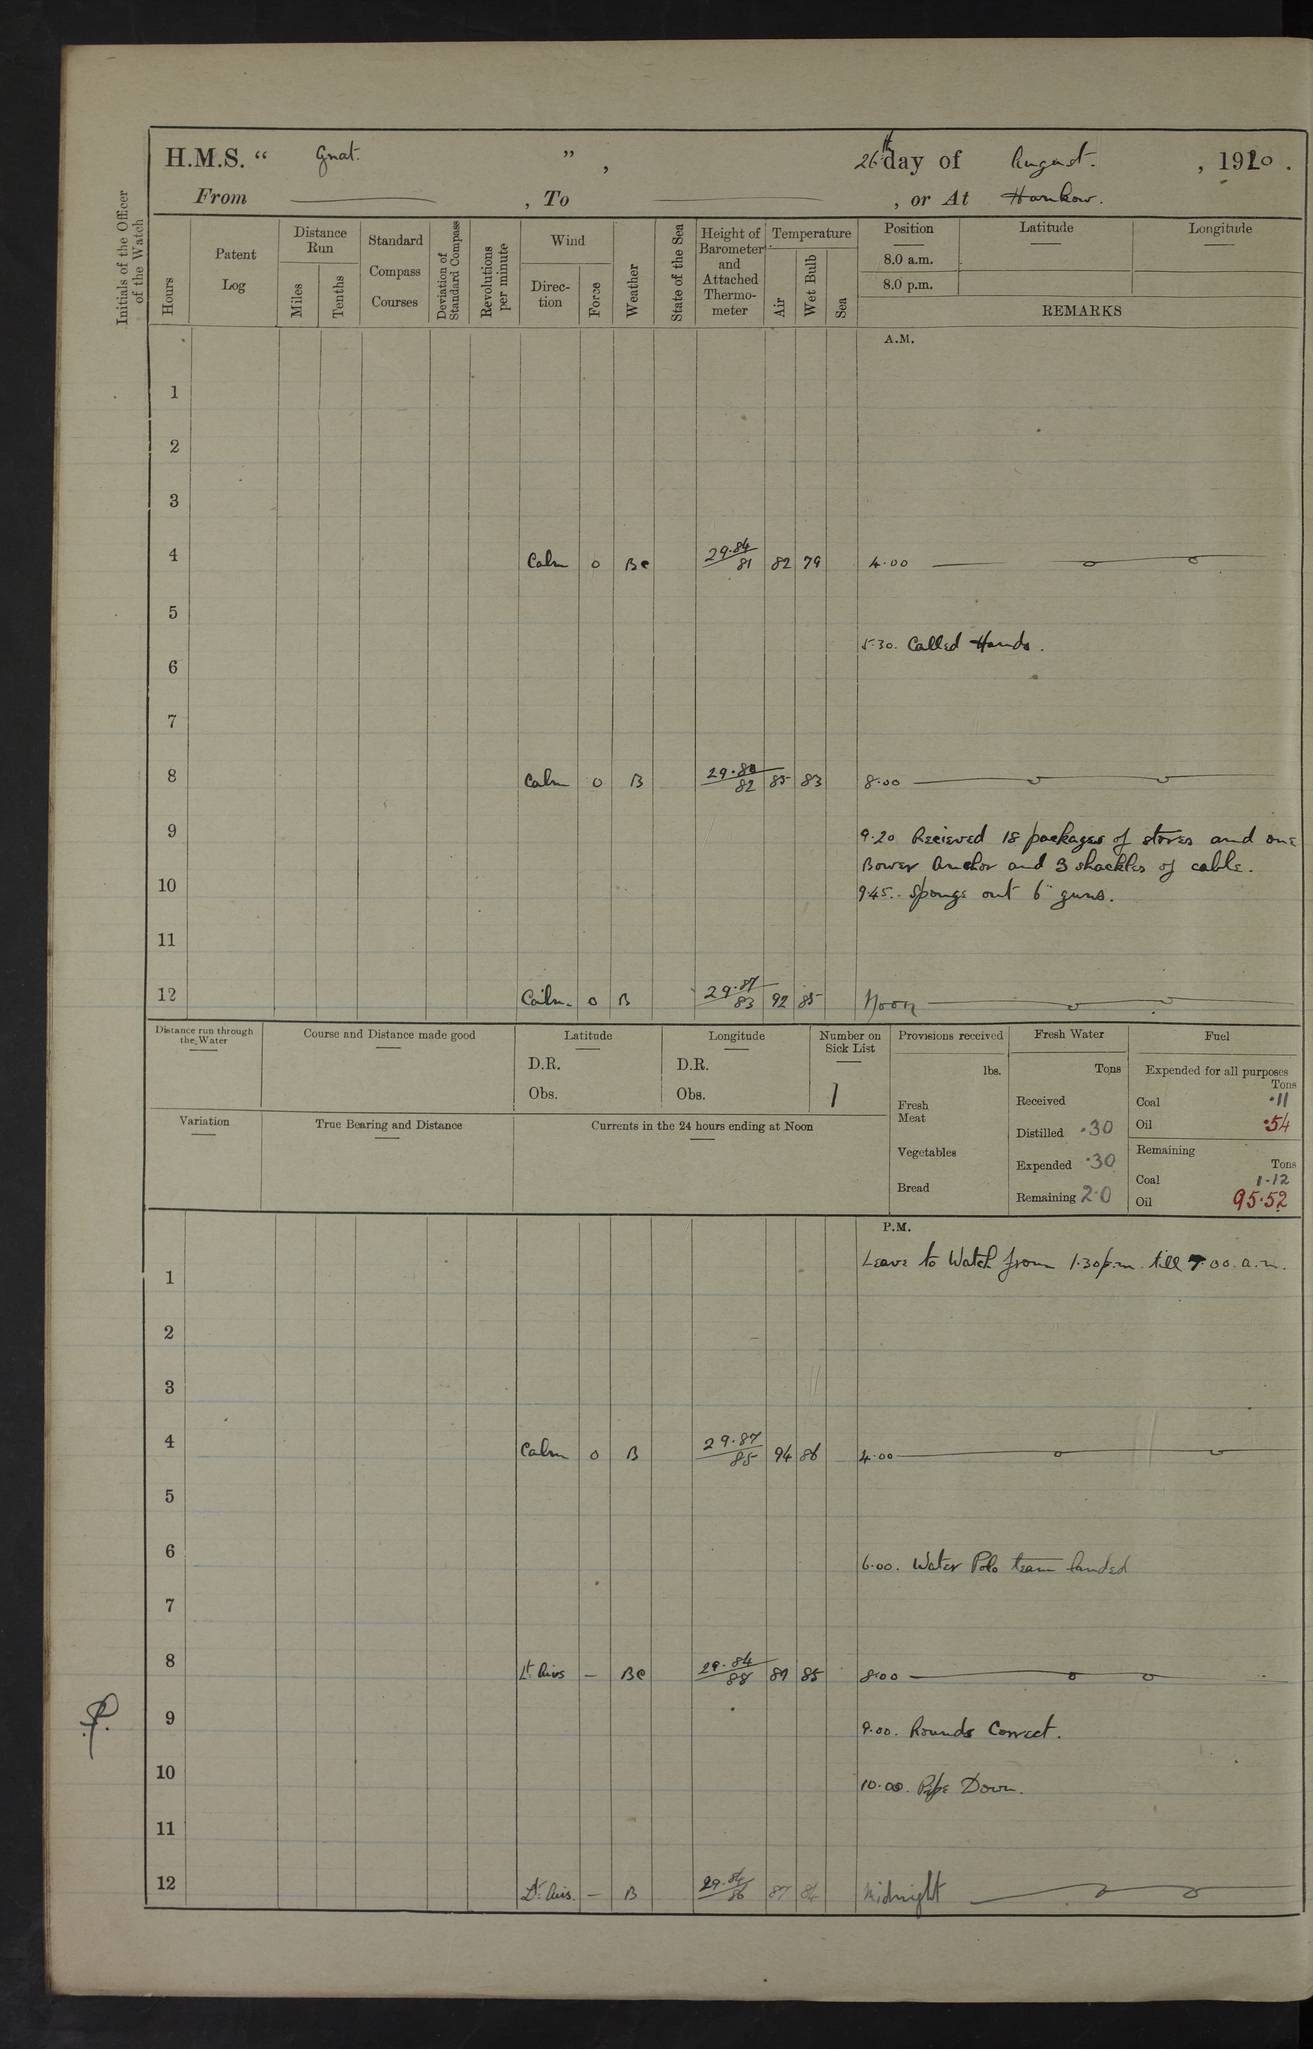 H.M.S. “ Gnat. ” , 26th day of August. , 1920 .
From , To , or At Hankow.
Initials of the Officer of the Watch
Hours
Patent Log
Distance Run
Miles
Tenths
Standard Compass Courses
Deviation of Standard Compass
Revolutions per minute
Wind
Direction
Force
Weather
State of the Sea
Height of Barometer and Attached Thermometer
Temperature
Air
Wet Bulb
Sea
Position Latitude Longitude
8.0 a.m.
8.0 p.m.
REMARKS
A.M.
1
2
3
4 Calm 0 Bc 29.84/81 82 79 4.00
5
5.30. Called Hands.
6
7
8 Calm 0 B 82 85 83 8.00
9 9.20 Recieved 18 packages of stores and one
Bower Anchor and 3 shackles of cable.
10 9.45. Sponge out 6" guns.
11
12 Calm. 0 B 29.87/83 92 85 Noon
Distance run through the Water
Course and Distance made good
Latitude
D.R.
Obs.
Longitude
D.R.
Obs.
Number on Sick List
1
Variation
True Bearing and Distance
Currents in the 24 hours ending at Noon
Provisions received
lbs.
Fresh Meat
Vegetables
Bread
Fresh Water
Tons
Received
Distilled .30
Expended .30
Remaining 2.0
Fuel
Expended for all purposes
Tons
Coal .11
Oil .54
Remaining
Tons
Coal 1.12
Oil 95.52
P.M.
Leave to Watch from 1.30p.m. till 7.00.a.m.
1
2
3
4 Calm 0 B 29.87/85 94 86 4.00
5
6 6.00. Water Polo team landed
7
8 Lt Airs – Bc 29.84/88 89 85 8.00
9 9.00. Rounds Correct.
10 10.00. Pipe Down.
11
12 Lt Airs. – B 29.84/86 87 84 Midnight